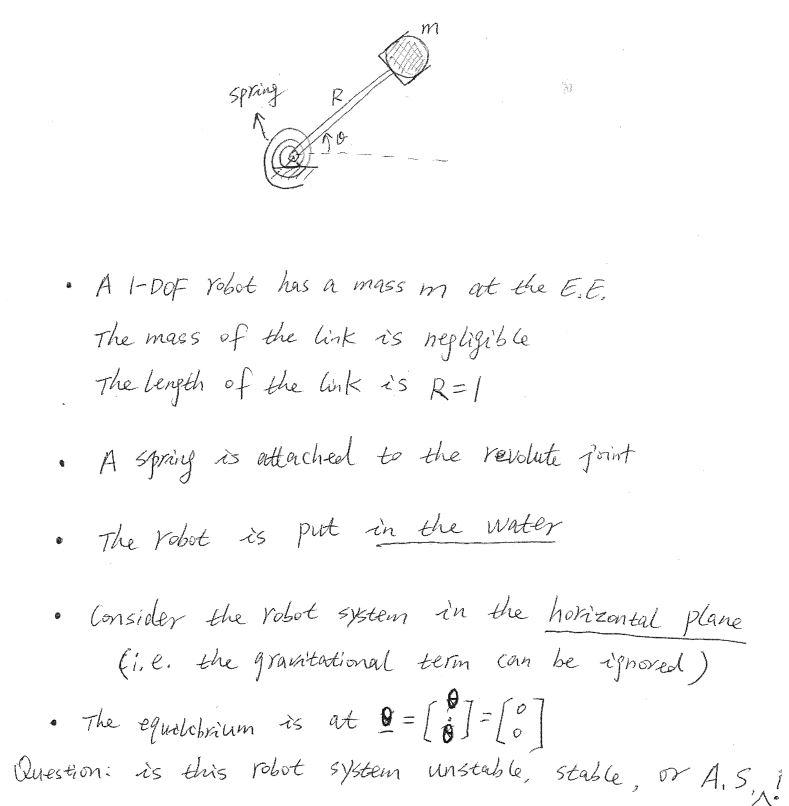 m
spring
R
θ
• A 1-DOF robot has a mass m at the E.E.
The mass of the link is negligible
The length of the link is R=1
• A spring is attached to the revolute joint
• The robot is put in the water
• Consider the robot system in the horizontal plane
(i.e. the gravitational term can be ignored)
• The equilibrium is at θ = [θ θ̇] = [0 0]
Question: is this robot system unstable, stable, or A.S.